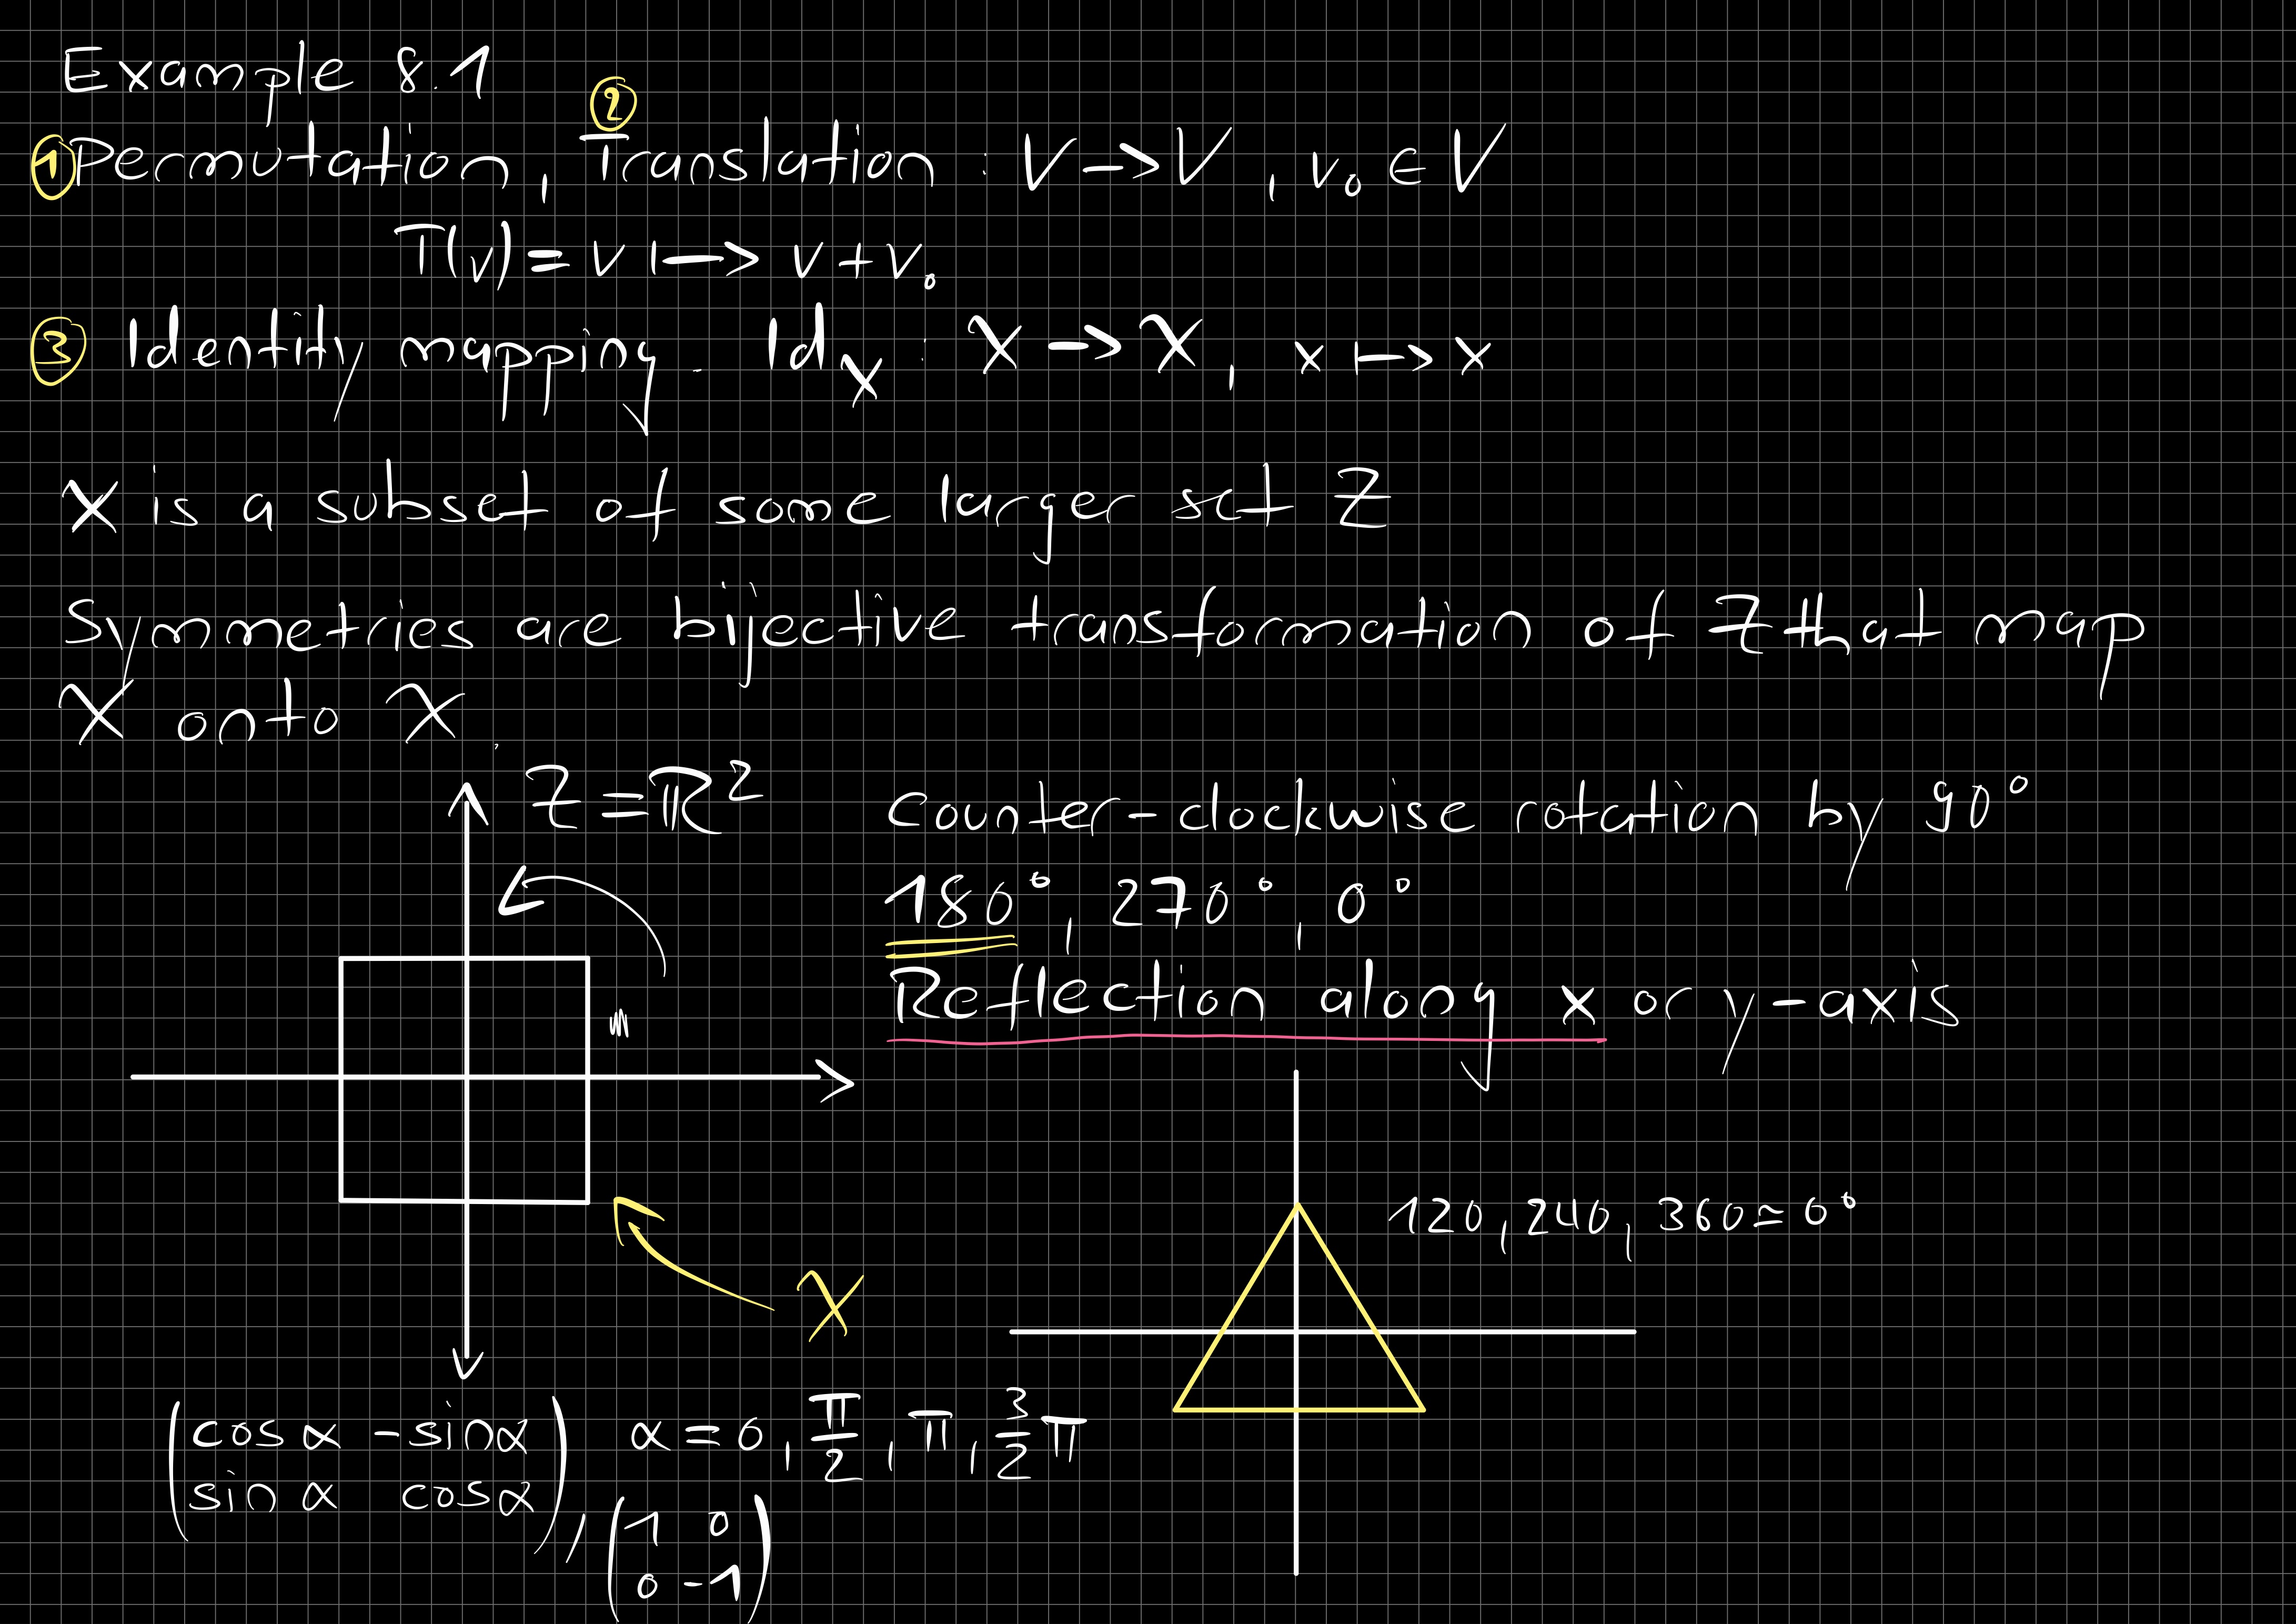 Example 8.1
① Permutation, ② Translation: V → V, v₀ ∈ V
T(v) = v ↦ v + v₀
③ Identity mapping. Id_X : X → X, x ↦ x
X is a subset of some larger set Z
Symmetries are bijective transformation of Z that map
X onto X.
Z = ℝ²
Counter-clockwise rotation by 90°
180°, 270°, 0°
Reflection along x or y-axis
120, 240, 360 = 0°
X
(cos α −sin α
sin α cos α), α = 0, π/2, π, 3/2 π
(1 0
0 −1)